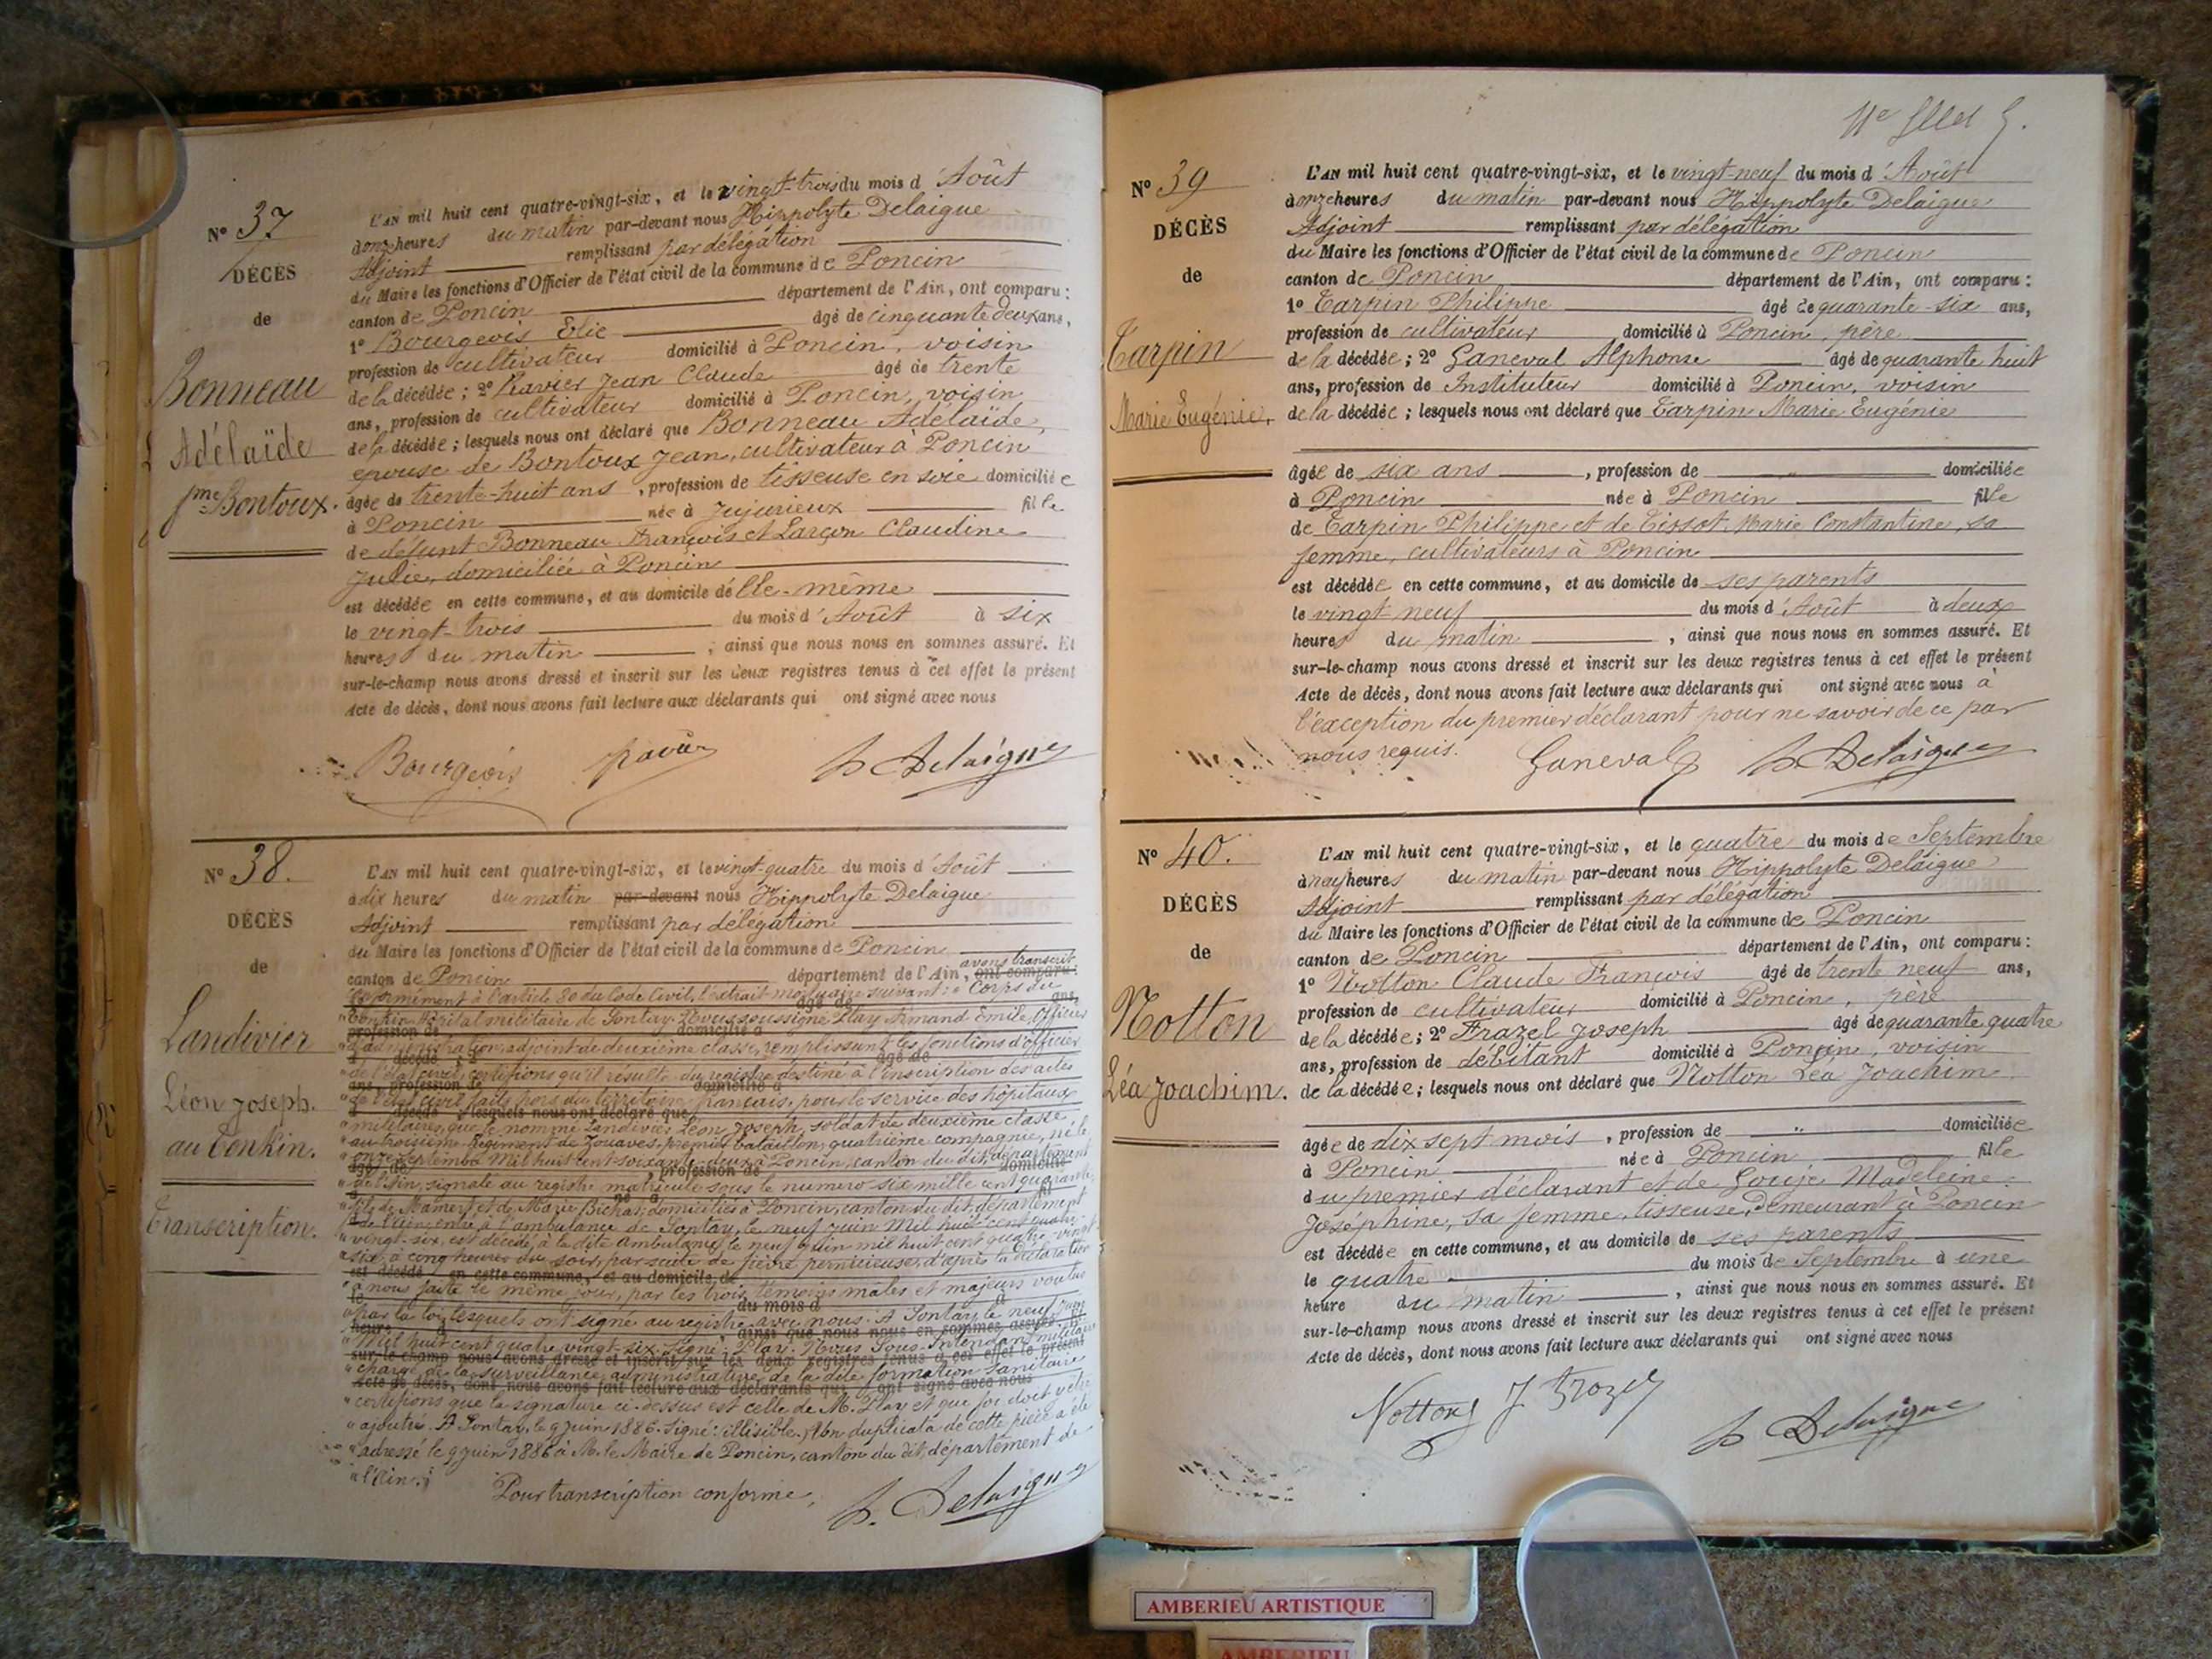 N° 37
DÉCÈS
de
Bonneau
Adélaïde
fme Bontoux.
L'AN mil huit cent quatre-vingt-six, et le vingt-trois du mois d'Août
à onze heures du matin par-devant nous Hippolyte Delaigue
Adjoint remplissant par délégation
du Maire les fonctions d'Officier de l'état civil de la commune de Poncin
canton de Poncin département de l'Ain, ont comparu :
1° Bourgeois Elie âgé de cinquante deux ans,
profession de cultivateur domicilié à Poncin, voisin
de la décédée ; 2° Ravier Jean Claude âgé de trente
ans, profession de cultivateur domicilié à Poncin, voisin
de la décédée ; lesquels nous ont déclaré que Bonneau Adélaïde,
épouse de Bontoux Jean, cultivateur à Poncin
âgée de trente-huit ans, profession de tisseuse en soie domiciliée
à Poncin née à Jujurieux fille
de défunt Bonneau François et Larçon Claudine
Julie, domiciliée à Poncin
est décédée en cette commune, et au domicile d'elle-même
le vingt-trois du mois d'Août à six
heures du matin ; ainsi que nous nous en sommes assuré. Et
sur-le-champ nous avons dressé et inscrit sur les deux registres tenus à cet effet le présent
Acte de décès, dont nous avons fait lecture aux déclarants qui ont signé avec nous
Bourgeois Ravier h Delaigue
N° 38.
DÉCÈS
de
Landivier
Léon Joseph.
au Tonkin.
Transcription.
L'AN mil huit cent quatre-vingt-six, et le vingt-quatre du mois d'Août
à dix heures du matin par-devant nous Hippolyte Delaigue
Adjoint remplissant par délégation
du Maire les fonctions d'Officier de l'état civil de la commune de Poncin
canton de Poncin département de l'Ain, avons transcrit ont comparu :
conformément à l'article 80 du Code Civil, l'extrait mortuaire suivant : " Corps du
" Tonkin. Hôpital militaire de Sontay. Nous soussigné Play Armand Emile, Officier
" d'administration adjoint de deuxième classe, remplissant les fonctions d'officier
" de l'état civil, certifions qu'il résulte du registre destiné à l'inscription des actes
" de l'état civil faits hors du territoire français, pour le service des hôpitaux
" militaires, que le nommé Landivier Léon Joseph, soldat de deuxième classe
" au troisième Régiment de Zouaves, premier bataillon, quatrième compagnie, né le
" onze Septembre mil huit cent soixante-deux à Poncin, canton du dit, département
" de l'Ain, signalé au registre matricule sous le numéro six mille cent quarante,
" fils de Mamert et de Marie Bichat, domiciliés à Poncin, canton du dit, département
" de l'Ain, entré à l'ambulance de Sontay, le neuf juin mil huit cent quatre
" vingt-six, est décédé à la dite ambulance le neuf juin mil huit cent quatre-vingt
" six à cinq heures du soir, par suite de fièvre pernicieuse, d'après la déclaration
" à nous faite le même jour, par les trois témoins mâles et majeurs voulus
" par la loi, lesquels ont signé au registre avec nous. A Sontay, le neuf juin
" mil huit cent quatre vingt-six. Signé : Play. Nous Sous-Intendant militaire
" chargé de la surveillance administrative de la dite formation sanitaire
" certifions que la signature ci-dessus est celle de M. Play et que foi doit y être
" ajoutée. A Sontay, le 9 juin 1886. Signé : illisible. Un duplicata de cette pièce a été
" adressé le 9 juin 1886 à M. le Maire de Poncin, canton du dit, département de
" l'Ain."
Pour transcription conforme,
h. Delaigue
N° 39
DÉCÈS
de
Tarpin
Marie Eugénie.
L'AN mil huit cent quatre-vingt-six, et le vingt-neuf du mois d'Août
à onze heures du matin par-devant nous Hippolyte Delaigue
Adjoint remplissant par délégation
du Maire les fonctions d'Officier de l'état civil de la commune de Poncin
canton de Poncin département de l'Ain, ont comparu :
1° Tarpin Philippe âgé de quarante-six ans,
profession de cultivateur domicilié à Poncin, père
de la décédée ; 2° Ganeval Alphonse âgé de quarante huit
ans, profession de Instituteur domicilié à Poncin, voisin
de la décédée ; lesquels nous ont déclaré que Tarpin Marie Eugénie
âgée de six ans, profession de " domiciliée
à Poncin née à Poncin fille
de Tarpin Philippe et de Tissot Marie Constantine, sa
femme, cultivateurs à Poncin
est décédée en cette commune, et au domicile de ses parents
le vingt neuf du mois d'Août à deux
heures du matin, ainsi que nous nous en sommes assuré. Et
sur-le-champ nous avons dressé et inscrit sur les deux registres tenus à cet effet le présent
Acte de décès, dont nous avons fait lecture aux déclarants qui ont signé avec nous à
l'exception du premier déclarant pour ne savoir de ce par
nous requis. Ganeval h. Delaigue
N° 40.
DÉCÈS
de
Notton
Léa Joachim.
L'AN mil huit cent quatre-vingt-six, et le quatre du mois de Septembre
à neuf heures du matin par-devant nous Hippolyte Delaigue
Adjoint remplissant par délégation
du Maire les fonctions d'Officier de l'état civil de la commune de Poncin
canton de Poncin département de l'Ain, ont comparu :
1° Notton Claude François âgé de trente neuf ans,
profession de cultivateur domicilié à Poncin, père
de la décédée ; 2° Frazel Joseph âgé de quarante quatre
ans, profession de débitant domicilié à Poncin, voisin
de la décédée ; lesquels nous ont déclaré que Notton Léa Joachim
âgée de dix sept mois, profession de " domiciliée
à Poncin née à Poncin fille
du premier déclarant et de Gouje Madeleine
Joséphine, sa femme, tisseuse, demeurant à Poncin
est décédée en cette commune, et au domicile de ses parents
le quatre du mois de Septembre à une
heure du matin, ainsi que nous nous en sommes assuré. Et
sur-le-champ nous avons dressé et inscrit sur les deux registres tenus à cet effet le présent
Acte de décès, dont nous avons fait lecture aux déclarants qui ont signé avec nous
Notton J Frozel
h Delaigue
AMBERIEU ARTISTIQUE
AMBERIEU